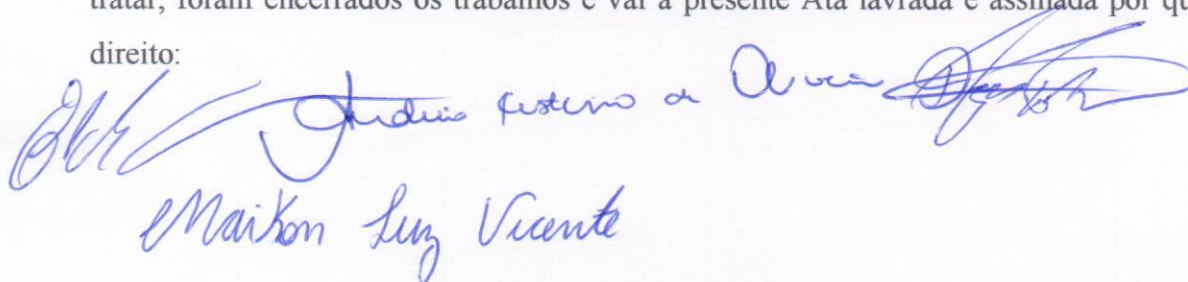 tratar, foram encerrados os trabalhos e vai a presente Ata lavrada e assinada por qu
direito:
de
Maikon Luiz Vicente